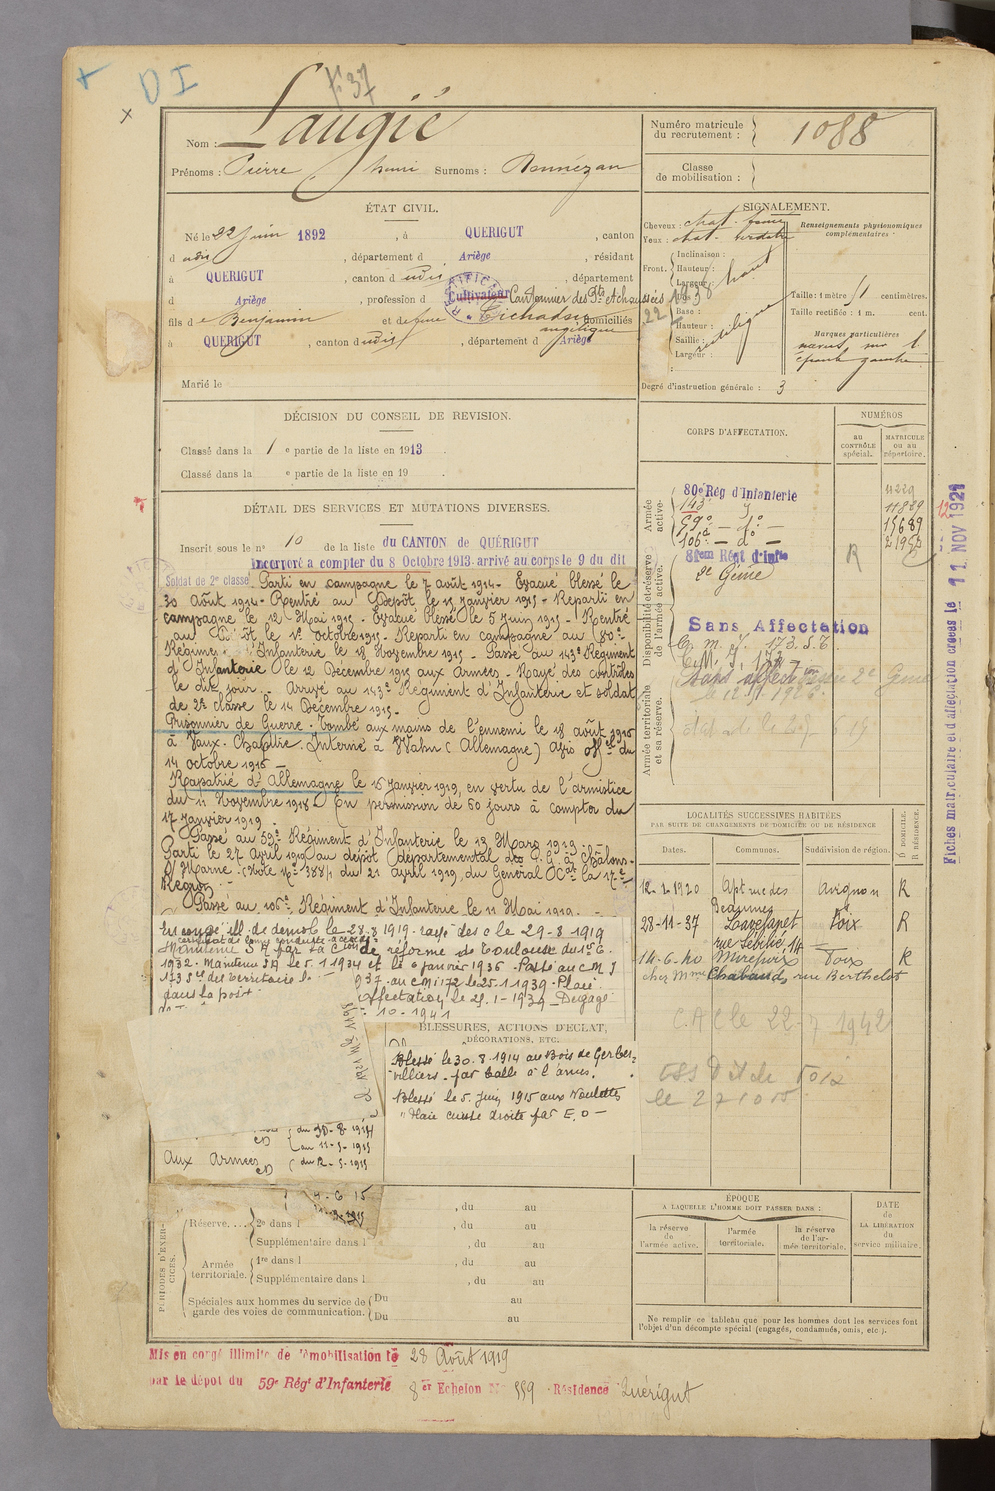 D I
F 37
Nom : Laugié
Prénoms : Pierre henri Surnoms : Bonnézan
Numéro matricule du recrutement : 1088
Classe de mobilisation :
ÉTAT CIVIL.
Né le 22 juin 1892, à QUERIGUT, canton
d udit, département d Ariège, résidant
à QUERIGUT, canton d udit, département
d Ariège, profession d Cultivateur Cantonnier des Pts et chaussées
fils d e Benjamin et de feue angélique domiciliés
à QUERIGUT, canton d udit, département d Ariège
Marié le
SIGNALEMENT.
Cheveux : chat. foncé
Yeux : chat. verdâtre
Front. Inclinaison :
Hauteur : haut
Largeur :
Base :
Hauteur : rectiligne
Saillie :
Largeur :
Renseignements physionomiques complémentaires
Taille : 1 mètre 51 centimètres.
Taille rectifiée : 1 m. cent.
Marques particulières
naevus sur l
épaule gauche
Degré d'instruction générale : 3
DÉCISION DU CONSEIL DE REVISION.
Classé dans la 1 e partie de la liste en 1913
Classé dans la e partie de la liste en 19 .
DÉTAIL DES SERVICES ET MUTATIONS DIVERSES.
Inscrit sous le n° 10 de la liste du CANTON de QUÉRIGUT
Incorporé à compter du 8 Octobre 1913 arrivé au corps le 9 du dit
Soldat de 2e classe. Parti en campagne le 7 août 1914 - Evacué blessé le
30 Août 1914 - Rentré au Dépôt le 15 Janvier 1915 - Reparti en
campagne le 12 Mai 1915 - Evacué blessé le 5 Juin 1915 - Rentré
au Dépôt le 1er Octobre 1915 - Reparti en campagne au 80e
Régiment d'Infanterie le 18 Novembre 1915 - Passé au 143e Régiment
d'Infanterie le 12 Décembre 1915 aux Armées - Rayé des contrôles
le dit jour - Arrivé au 143e Régiment d'Infanterie et soldat
de 2e classe le 14 Décembre 1915 -
Prisonnier de Guerre - Tombé aux mains de l'ennemi le 18 août 1916
à Vaux-Chapitre. Interné à Wahn (Allemagne) Avis off el du
14 octobre 1916 -
Rapatrié d'Allemagne le 16 Janvier 1919, en vertu de l'armistice
du 11 Novembre 1918. En permission de 60 jours à compter du
17 Janvier 1919.
Passé au 59e Régiment d'Infanterie le 13 Mars 1919 -
Parti le 27 Avril 1919 au dépôt départemental des P. G. à Châlons-
S/ Marne. (Note N° 3884 du 21 Avril 1919, du Général Ct la 17e
Région -
Passé au 106e Régiment d'Infanterie le 11 Mai 1919. -
En congé ill. de démob le 28-8 1919 - rayé des c le 29-8 1919
certificat de bonne conduite accordé
Maintenu S A par la Cion de réforme de Toulouse du 1er 6.
1932 - Maintenu SA le 5 1 1934 et le 6 janvier 1936 - Passé au C M I
173 Sect des territoire l 937 - au C M I 172 le 25-1 1939 - Placé
dans la posit affectation le 25-1-1939 - Dégagé
- 10-1941
CORPS D'AFFECTATION.
NUMÉROS
au CONTRÔLE spécial.
MATRICULE ou au répertoire.
Armée active.
80e Rég d'Infanterie 4229
143e 11889
59e - do - 15689
106e - do - 21950
Disponibilité et réserve de l'armée active.
81em Régt d'Infie
2e Génie R
Sans Affectation
C. M. I. 173. S. T.
C. M. I. 172
Sans affectation 2e Génie
Armée territoriale et sa réserve.
12
Fiches matriculaire et d'affectation créées le 11 NOV 1921
LOCALITÉS SUCCESSIVES HABITÉES
PAR SUITE DE CHANGEMENTS DE DOMICILE OU DE RÉSIDENCE
Dates. Communes. Subdivision de région. D DOMICILE. R RÉSIDENCE.
12-2 1920 Apt rue des Beaumes Avignon R
28-11-37 Lavelanet rue Lebihé 14 Foix R
14-6-40 Mirepoix Foix R
chez Mme Chabaud, rue Berthelot
C.A.C le 22-7 1942
BLESSURES, ACTIONS D'ÉCLAT, DÉCORATIONS, ETC.
Blessé le 30. 8. 1914 au Bois de Gerber-
villiers - par balle à l'aine.
Blessé le 5 Juin 1915 aux Noulettes
" Plaie cuisse droite par E. O -
du 30-8-1914
au 11-5-1915
Aux Armées CD du 12-5-1915
4-6 15
PÉRIODES D'EXERCICES.
Réserve.... 2e dans l , du au
, du au
Supplémentaire dans l , du au
Armée territoriale. 1re dans l , du au
Supplémentaire dans l , du au
Spéciales aux hommes du service de garde des voies de communication. Du au
Du au
ÉPOQUE
A LAQUELLE L'HOMME DOIT PASSER DANS :
la réserve de l'armée active.
l'armée territoriale.
la réserve de l'armée territoriale.
DATE de LA LIBÉRATION du service militaire.
Ne remplir ce tableau que pour les hommes dont les services font l'objet d'un décompte spécial (engagés, condamnés, omis, etc.).
Mis en congé illimité de démobilisation le 28 Août 1919
par le dépôt du 59e Régt d'Infanterie 8 er Echelon N° 559 Résidence Quérigut